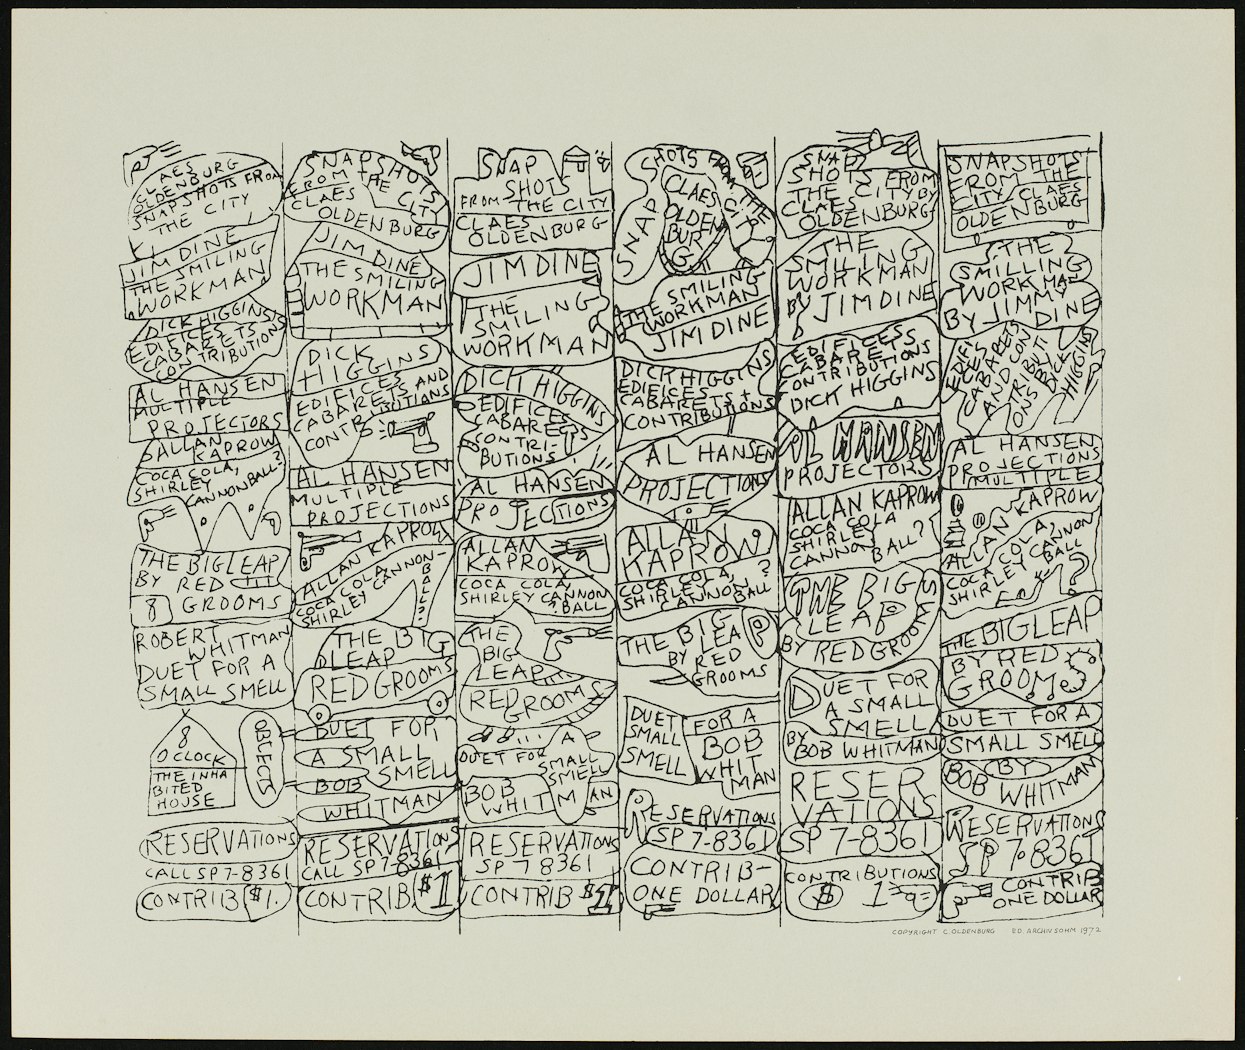 CLAES
OLDENBURG
SNAPSHOTS FROM
THE CITY
JIM DINE
THE SMILING
WORKMAN
DICK HIGGINS
EDIFICES
CABARETS +
CONTRIBUTIONS
AL HANSEN
MULTIPLE
PROJECTORS
ALLAN
KAPROW
COCA COLA,
SHIRLEY
CANNONBALL?
THE BIG LEAP
BY RED
8 GROOMS
ROBERT
WHITMAN
DUET FOR A
SMALL SMELL
8
O CLOCK
THE INHA
BITED
HOUSE
OBJECTS
RESERVATIONS
CALL SP 7-8361
CONTRIB $1.
SNAPSHOTS
FROM THE CITY
CLAES
OLDENBURG
JIM DINE
THE SMILING
WORKMAN
DICK
HIGGINS
EDIFICES AND
CABARETS
CONTRIBUTIONS
AL HANSEN
MULTIPLE
PROJECTIONS
ALLAN KAPROW
COCA COLA,
SHIRLEY CANNON-
BALL?
THE BIG
LEAP
RED GROOMS
DUET FOR
A SMALL
SMELL
BOB
WHITMAN
RESERVATIONS
CALL SP 7-8361
CONTRIB. $1
SNAP
SHOTS
FROM THE CITY
CLAES
OLDENBURG
JIM DINE
THE
SMILING
WORKMAN
DICK HIGGINS
EDIFICES
CABARETS
CONTRI
BUTIONS
AL HANSEN
PROJECTIONS
ALLAN
KAPROW
COCA COLA,
SHIRLEY CANNON
BALL
?
THE
BIG
LEAP
RED
GROOMS
DUET FOR A
SMALL
SMELL
BOB
WHITMAN
RESERVATIONS
SP 7 8361
CONTRIB $1
SNAP SHOTS FROM THE CITY
CLAES
OLDEN
BUR
G
THE SMILING
WORKMAN
JIM DINE
DICK HIGGINS
EDIFICES
CABARETS +
CONTRIBUTIONS
AL HANSEN
PROJECTIONS
ALLAN
KAPROW
COCA COLA,
SHIRLEY
CANNON BALL
?
THE BIG
LEAP
BY RED
GROOMS
DUET FOR A
SMALL
SMELL
BOB
WHIT
MAN
RESERVATIONS
SP 7-8361
CONTRIB-
ONE DOLLAR
SNAP
SHOTS FROM
THE CITY BY
CLAES
OLDENBURG
THE
SMILING
WORKMAN
BY JIM DINE
EDIFICES
CABARETS
CONTRIBUTIONS
DICK HIGGINS
AL HANSEN
PROJECTORS
ALLAN KAPROW
COCA COLA
SHIRLEY
CANNON BALL?
THE BIG
LEAP
BY RED GROOMS
DUET FOR
A SMALL
SMELL
BY
BOB WHITMAN
RESER
VATIONS
SP 7-8361
CONTRIBUTIONS
$ 1
SNAPSHOTS
FROM THE
CITY CLAES
OLDENBURG
THE
SMILLING
WORK MAN
BY JIMMY
DINE
EDIFICES
CABARETS
AND CON
TRIBUTI
ONS
DICK
HIGGINS
AL HANSEN
PROJECTIONS
MULTIPLE
ALLAN KAPROW
COCA COLA,
SHIRLEY CANNON
BALL
?
THE BIG LEAP
BY RED
GROOMS
DUET FOR A
SMALL SMELL
BOB BY
WHITMAN
RESERVATIONS
SP 7-8361
CONTRIB
ONE DOLLAR
COPYRIGHT C. OLDENBURG ED. ARCHIV SOHM 1972